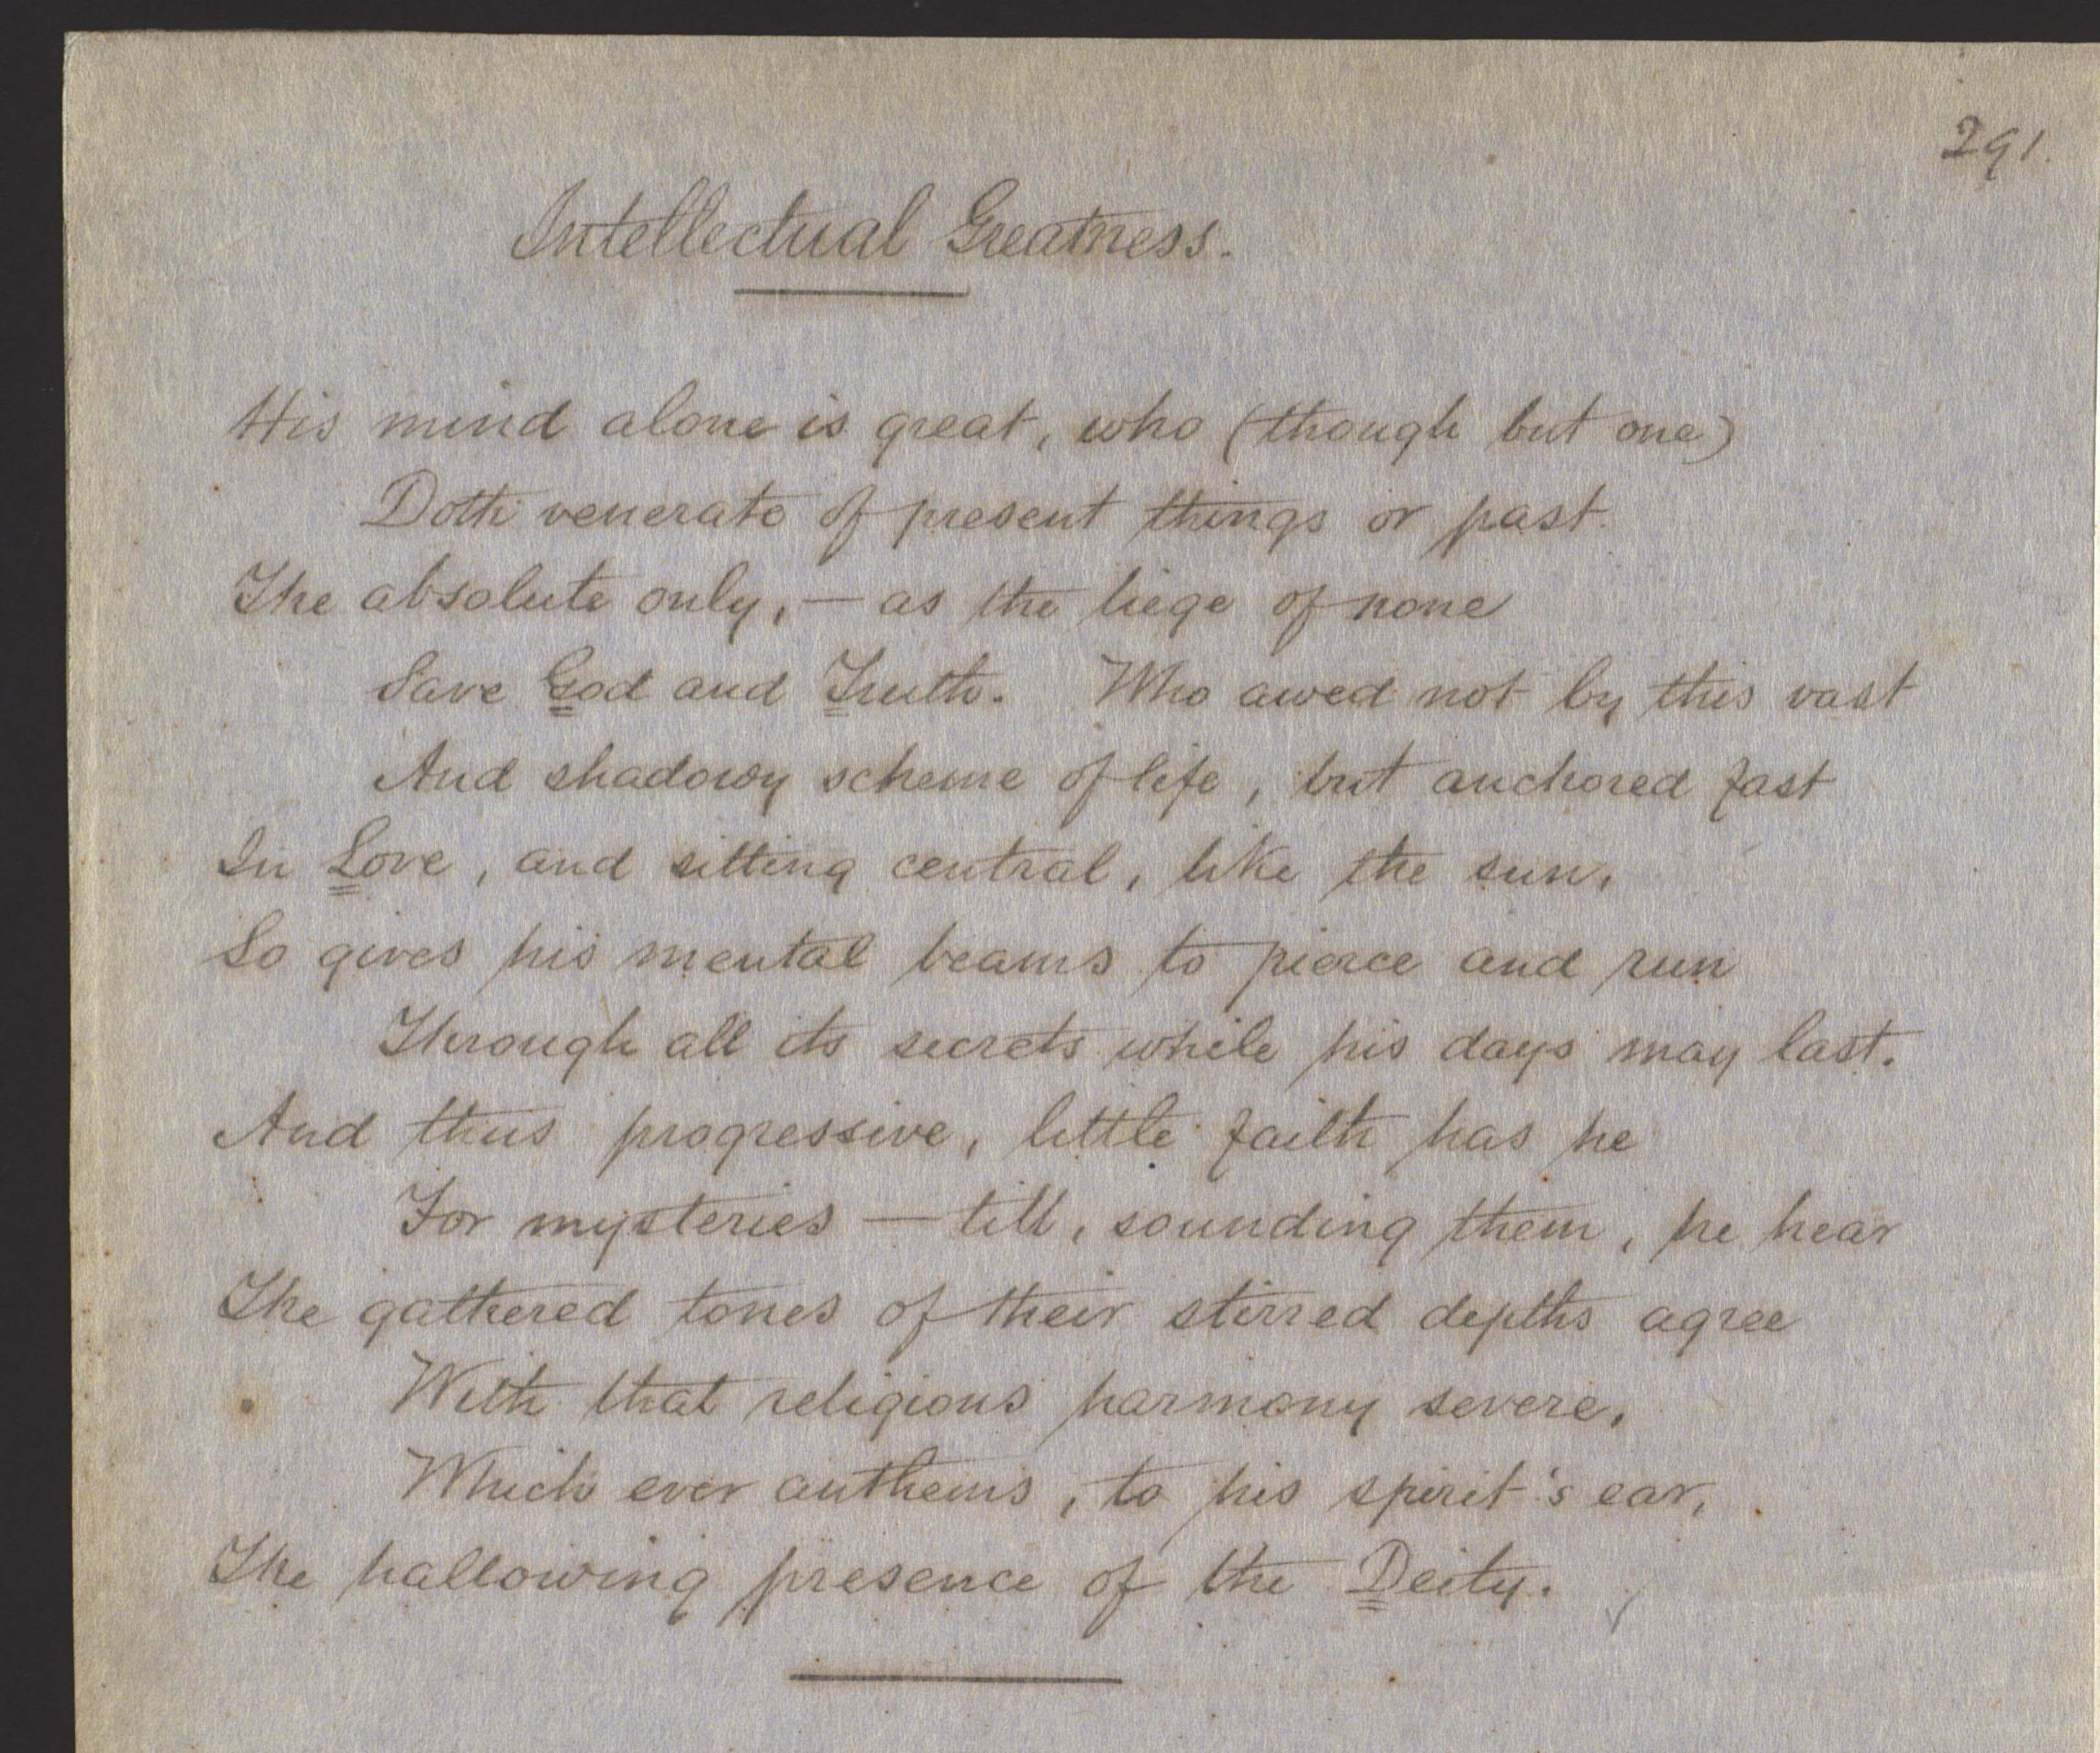 291.
Intellectual Greatness.
His mind alone is great, who (though but one)
Doth venerate of present things or past
The absolute only, — as the liege of none
Save God and Truth. Who awed not by this vast
And shadowy scheme of life, but anchored fast
In Love, and sitting central, like the sun,
So gives his mental beams to pierce and run
Through all its secrets while his days may last.
And thus progressive, little faith has he
For mysteries — till, sounding them, he hear
The gathered tones of their stirred depths agree
With that religious harmony severe,
Which ever anthems, to his spirit's ear,
The hallowing presence of the Deity.